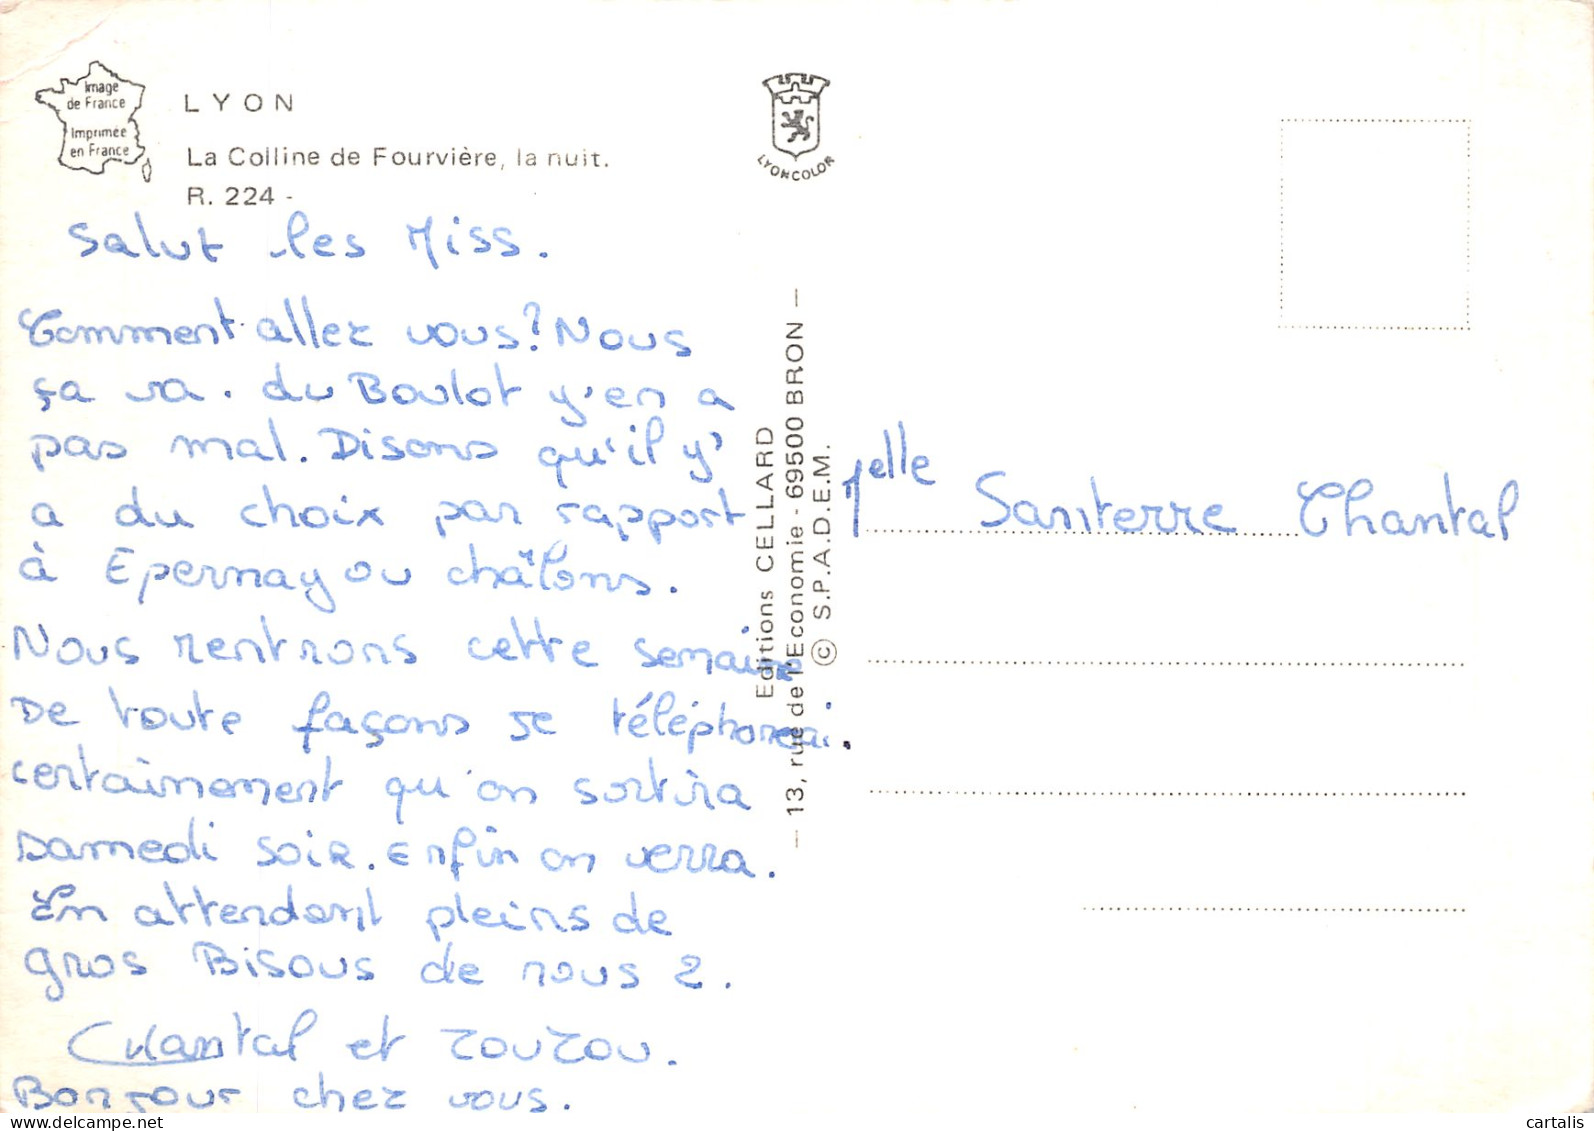 Image
de France
Imprimée
en France
LYON
La Colline de Fourvière, la nuit.
R. 224 -
LYONCOLOR
Salut les Miss.
Comment allez vous? Nous
ça va. du Boulot y'en a
pas mal. Disons qu'il y'
a du choix par rapport
à Epernay ou châlons.
Nous rentrons cette semaine
De toute façons je téléphonerai.
certainement qu'on sortira
samedi soir. Enfin on verra.
En attendant pleins de
gros Bisous de nous 2.
Chantal et ZOUZOU.
Bonjour chez vous.
Editions CELLARD
— 13, rue de l'Economie - 69500 BRON —
© S.P.A.D.E.M.
Melle Santerre Chantal
cartalis